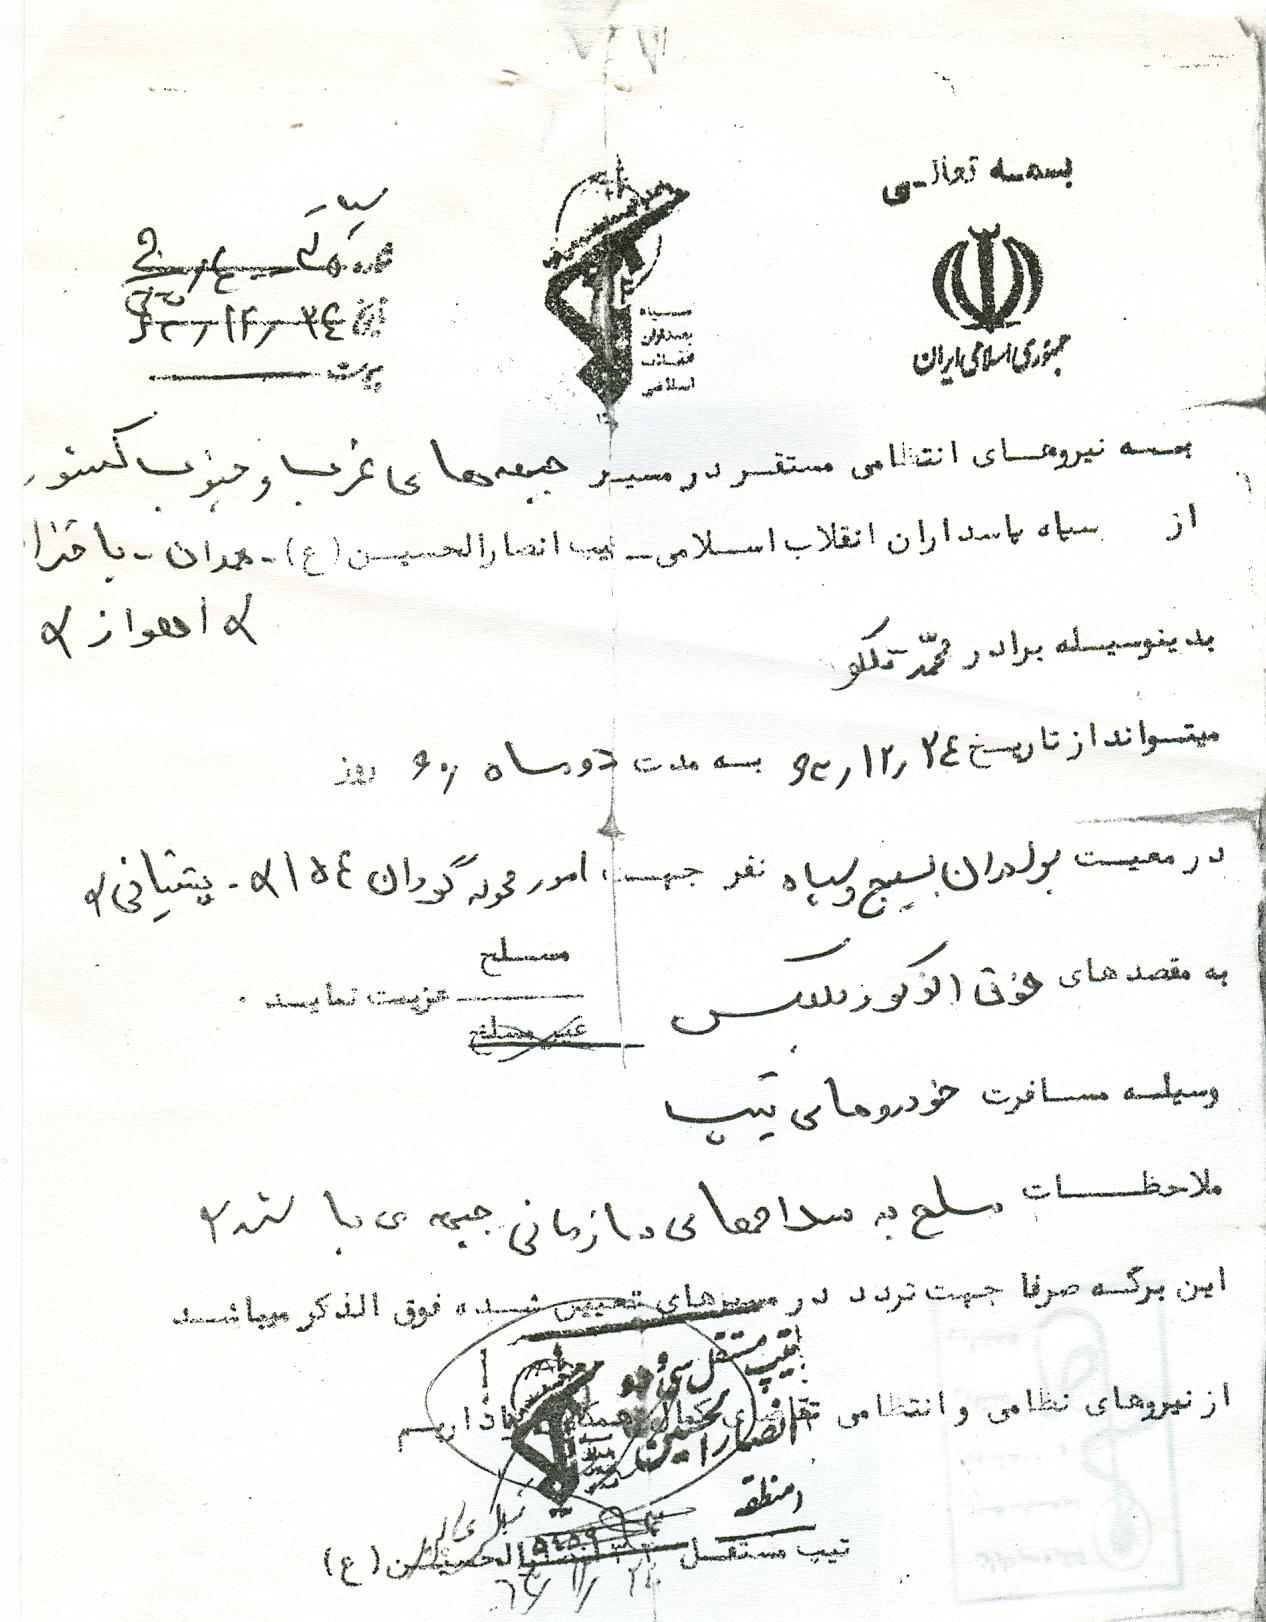 بسمه تعالی
جمهوری اسلامی ایران
سپاه
پاسداران
انقلاب
اسلامی
شماره
تاریخ ۶۳/۱۲/۲۴
پیوست
بسه نیروهای انتظامی مستقر در مسیر جبهه‌های غرب و جنوب کشور
از سپاه پاسداران انقلاب اسلامی - تیپ انصارالحسین (ع) - همدان - باختران
اهواز
بدینوسیله برادر محمّد تکلو
میتواند از تاریخ ۶۳/۱۲/۲۴ بسه مدت دو ماه ۶۰ روز
در معیت برادران بسیج و سپاه نفر جهت امور محوله گردان ۱۵۴ - پشتیبانی
به مقصدهای فوق الذکور
مسلح
غیر مسلح
عزیمت نماید .
وسیله مسافرت خودروهای تیپ
ملاحظات مسلح به سلاحهای سازمانی جبهه می باشند
این برگه صرفا جهت تردد در مسیرهای تعیین شده فوق الذکر میباشد
از نیروهای نظامی و انتظامی تقاضای کمال همکاری را داریم
تیپ مستقل سی و دو
انصارالحسین
منطقه
تیپ مستقل ۳۲ انصارالحسین (ع)
۶۳/۱۲/۲۴